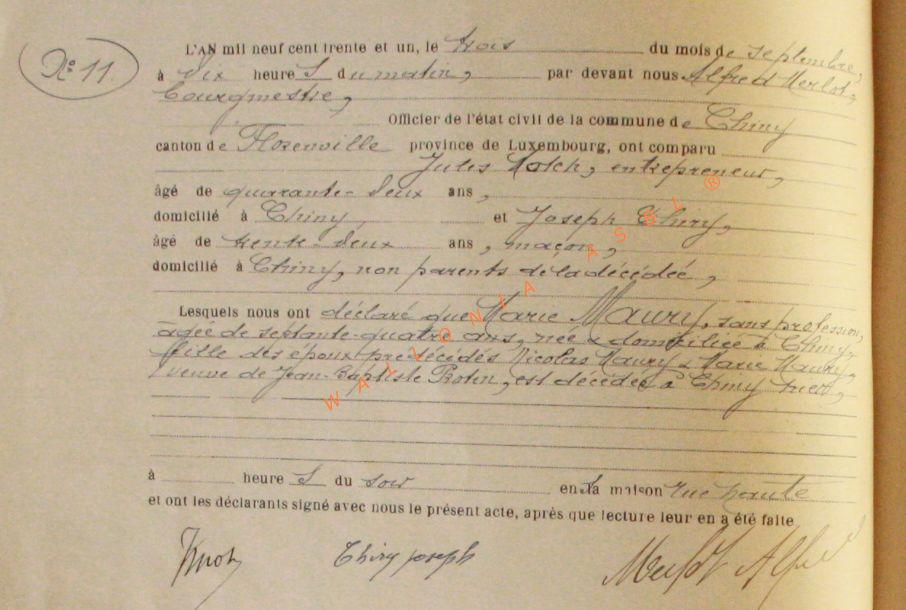 N° 11.
L'AN mil neuf cent trente et un, le trois du mois de septembre,
à dix heures du matin, par devant nous Alfred Merlot,
bourgmestre,
Officier de l'état civil de la commune de Chiny
canton de Florenville province de Luxembourg, ont comparu
Jules entrepreneur,
âgé de quarante-deux ans,
domicilié à Chiny, et Joseph Thiry,
âgé de trente-deux ans, maçon,
domicilié à Chiny, non parents de la décédée,
Lesquels nous ont déclaré que Marie Maury, sans profession,
agée de septante-quatre ans, née & domiciliée à Chiny,
fille des époux prédécédés Nicolas Maury & Marie Maury,
veuve de Jean-Baptiste, est décédée à Chiny hier,
à heures du soir en sa maison rue haute
et ont les déclarants signé avec nous le présent acte, après que lecture leur en a été faite
Thiry Joseph
WALLONIA ASBL ®